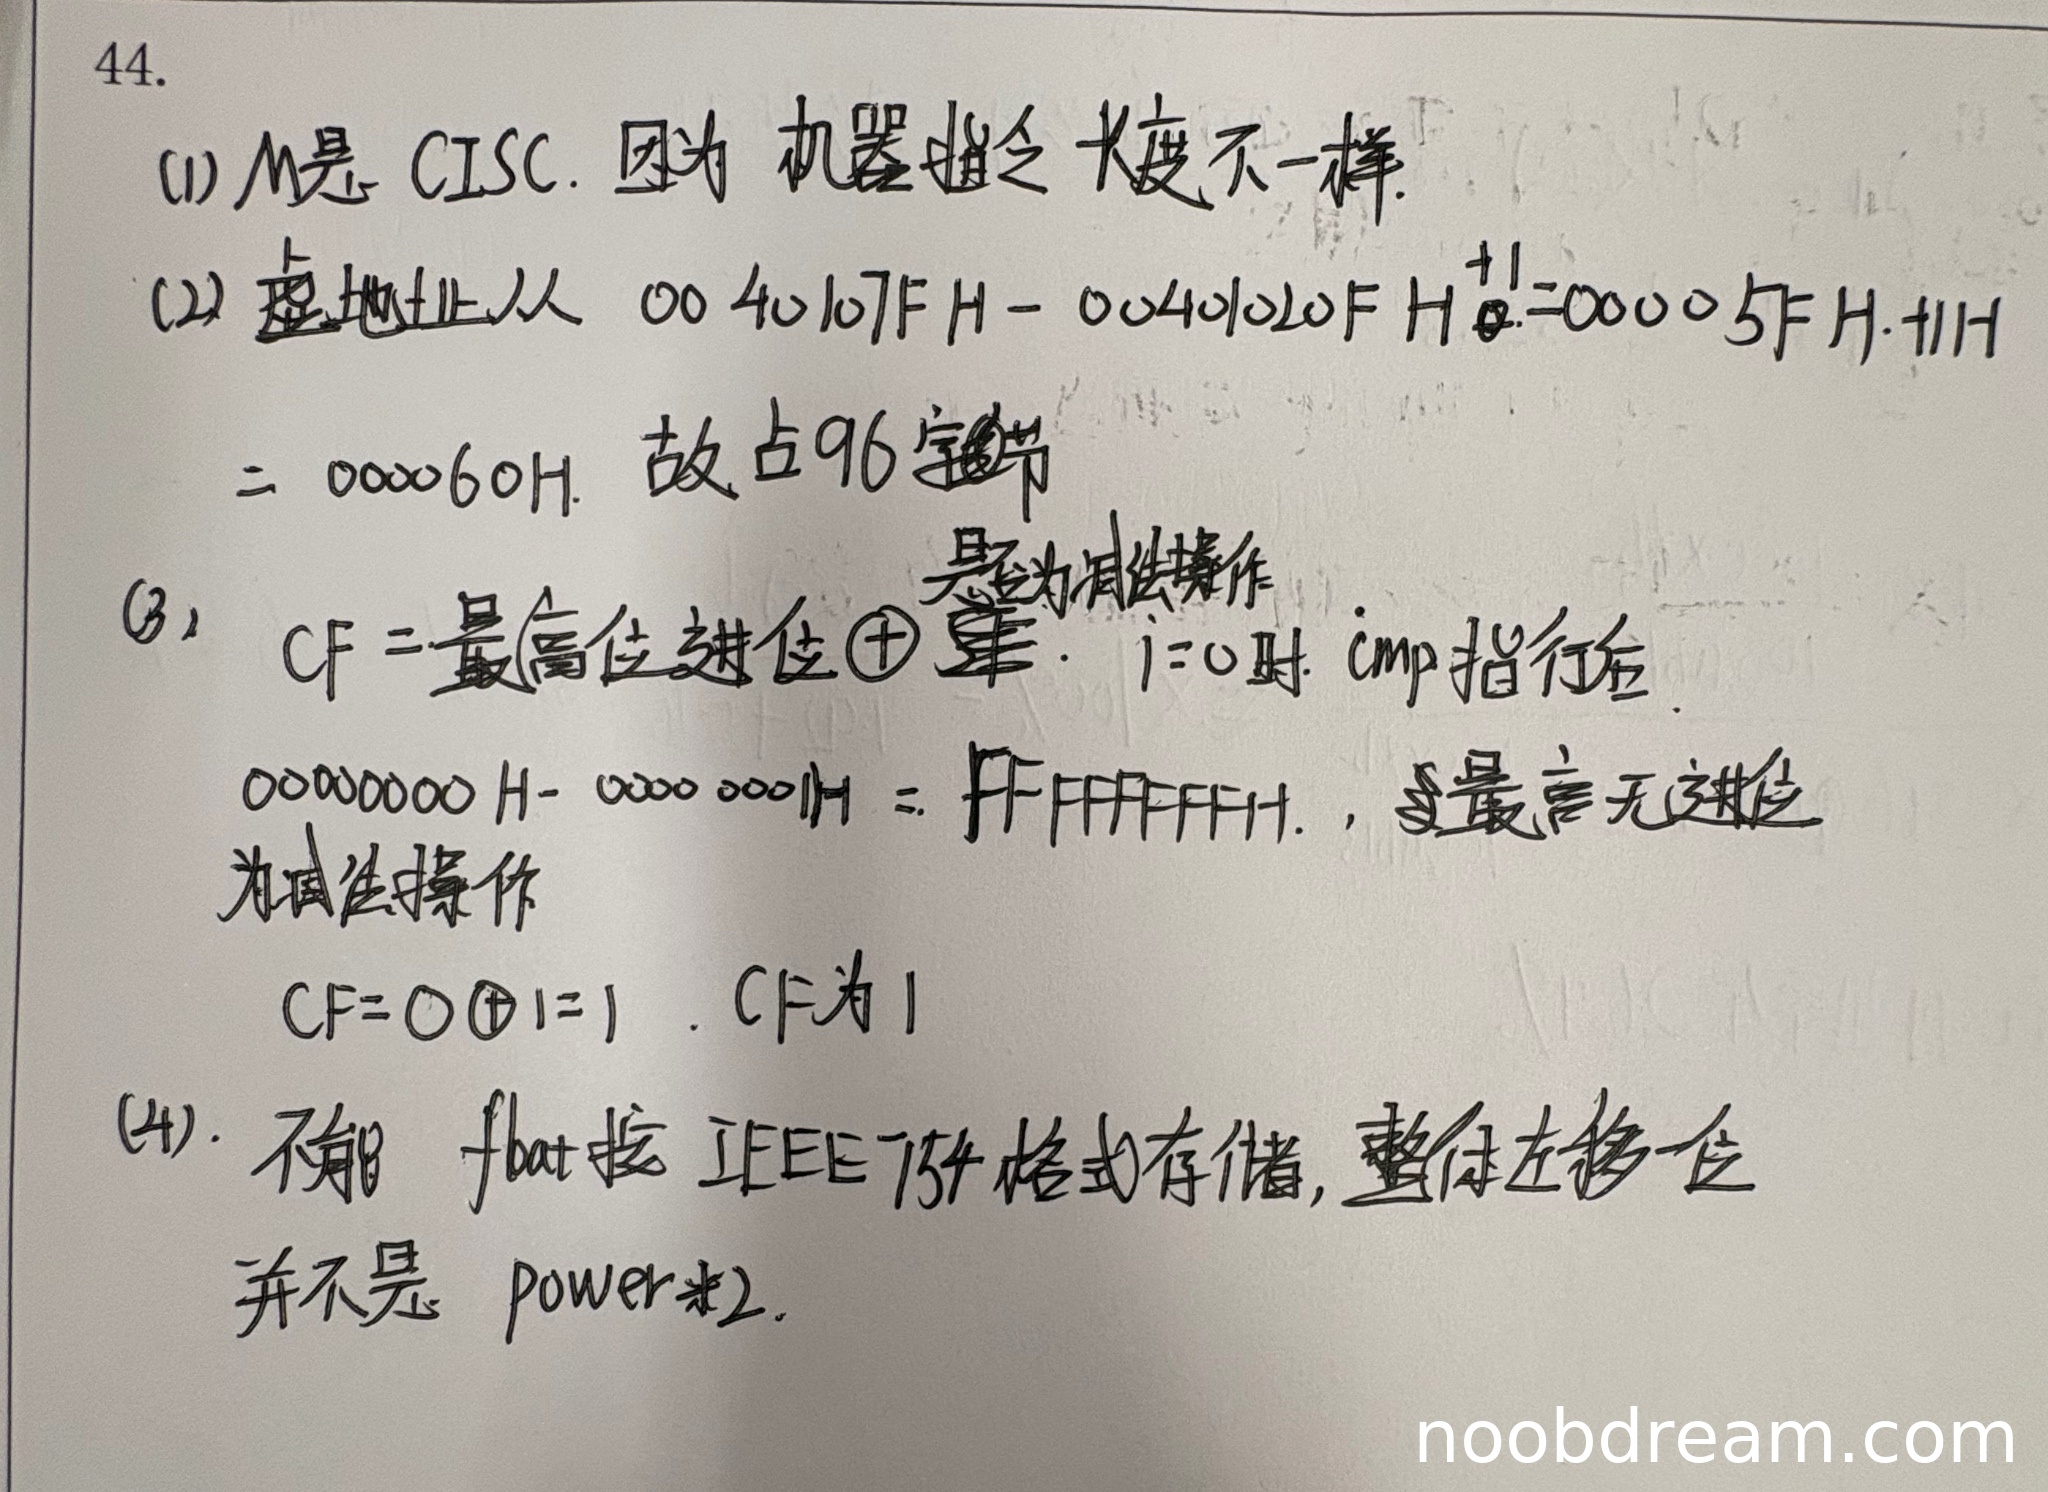 44.
(1) M是 CISC. 因为 机器指令 长度不一样.
(2) 虚地址从 0040107FH - 00401020FH +1 = 00005FH.+1H
= 000060H. 故占96字节
是否为减法操作
(3) CF = 最高位进位 ⊕ . i=0时. cmp指行后.
00000000H - 00000001H = FFFFFFFFH. , 最高无进位
为减法操作
CF=0⊕1=1 . CF为1
(4). 不能 float按 IEEE754格式存储, 整体左移一位
并不是 power*2.
noobdream.com